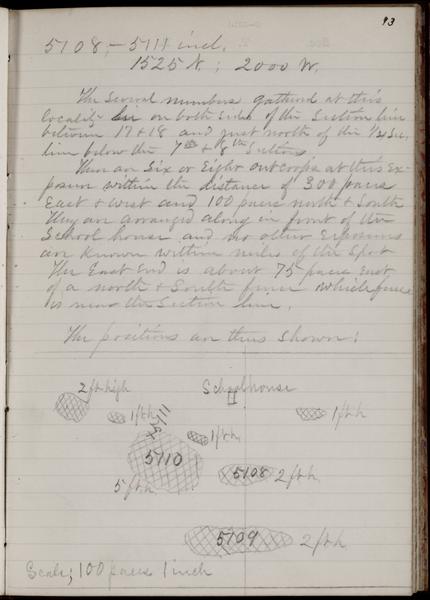 93
5108,-5111 incl.
1525 N.; 2000 W.
The several numbers gathered at this
locality lie on both sides of the Section line
between 17 & 18 and just north of the 1/4 Sec.
line below the 7th & 8th
There are Six or Eight outcrops at this Ex-
posure within the distance of 300 paces
East & West and 100 paces north & South
They are arranged along in front of the
School house and no other Exposures
are known within miles of the Spot
The East End is about 75 paces East
of a north & South fence which fence
is near the Section line.
The positions are thus shown:
2 ft. high
Schoolhouse
1 ft. h
5111
1 ft. h
1 ft. h
5110
5108 2 ft. h
5 ft. h
5109 2 ft. h
Scale; 100 paces 1 inch